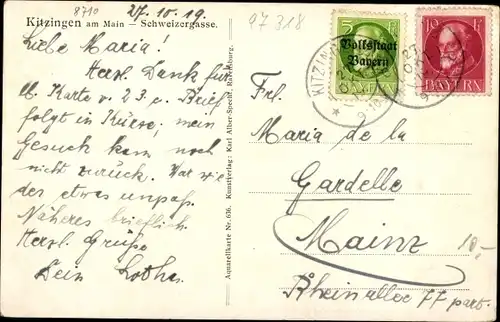 8710
Kitzingen am Main — Schweizergasse.
27.10.19.
97318
Liebe Maria!
Herzl. Dank für
ll. Karte v. 23 c. Brief
folgt in Kürze; mein
Gesuch kam noch
nicht zurück. War wie
der etwas unpaß.
Näheres brieflich
Herzl. Grüße
Dein Lothar
Aquarellkarte Nr. 616. Kunstverlag: Karl Alber-Specht, Ravensburg.
5
Volksstaat
Bayern
BAYERN
10 PF
BAYERN
KITZIN
Frl.
Maria de la
Gardelle
Mainz
10,-
Rheinallee ?? part.